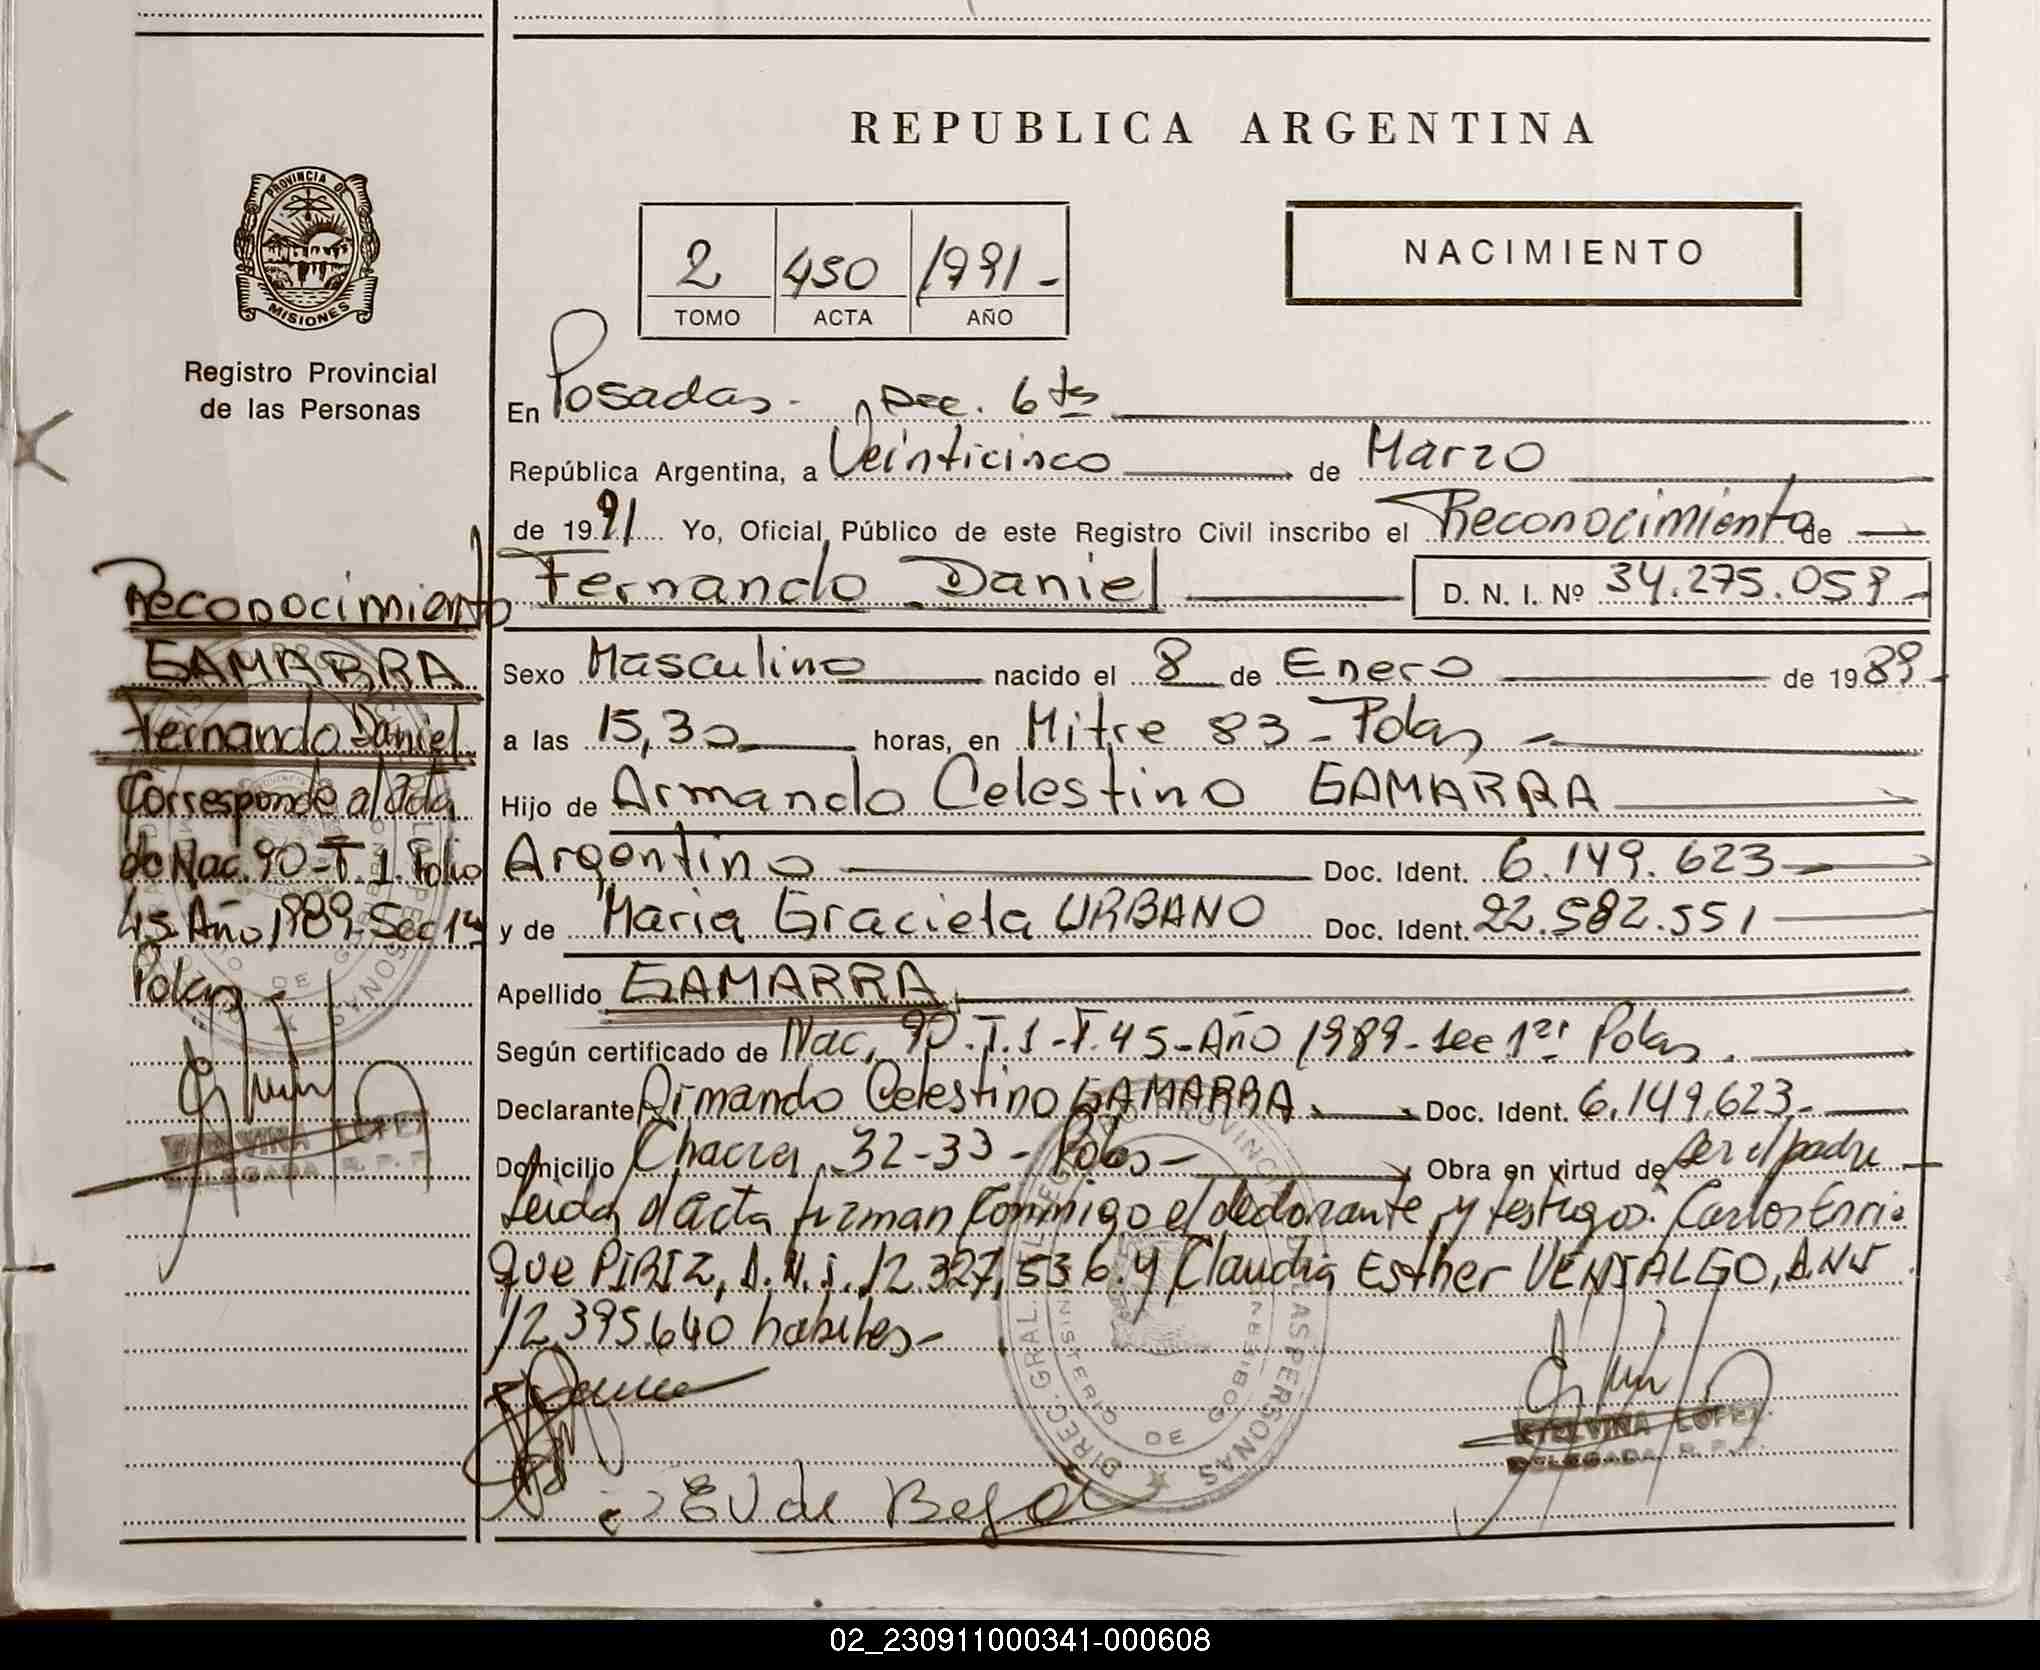 REPUBLICA ARGENTINA
PROVINCIA DE
MISIONES
Registro Provincial
de las Personas
2 450 1991-
TOMO ACTA AÑO
NACIMIENTO
En Posadas - sec. 6ta
República Argentina, a Veinticinco de Marzo
de 1991 Yo, Oficial Público de este Registro Civil inscribo el Reconocimiento de
Fernando Daniel D. N. I. Nº 34.275.059-
Sexo Masculino nacido el 8 de Enero de 1989-
a las 15,30 horas, en Mitre 83 - Pdas -
Hijo de Armando Celestino GAMARRA
Argentino Doc. Ident. 6.149.623
y de Maria Graciela URBANO Doc. Ident. 22.582.551
Apellido GAMARRA
Según certificado de Nac, 90-T.1-F.45-Año 1989-sec 1ra Pdas.
Declarante Armando Celestino GAMARRA Doc. Ident. 6.149.623.-
Domicilio Chacra 32-33 - Pdas - Obra en virtud de ser el padre
Leida el acta firman conmigo el declarante y testigos: Carlos Enri-
que PIRIZ, D.N.i. 12.327.536 y Claudia Esther VENIALGO, D.N.i
12.395.640 habiles-
Reconocimiento
GAMARRA
Fernando Daniel
Corresponde al Acta
de Nac. 90-T.1. Folio
45 Año 1989-Sec 1ra
Pdas -
ETELVINA LOPEZ
DELEGADA R. P. P.
ETELVINA LOPEZ
DELEGADA R. P. P.
EV de Bega
02_230911000341-000608